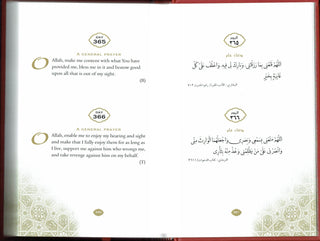 365
A GENERAL PRAYER
O Allah, make me content with what You have
provided me, bless me in it and bestow good
upon all that is out of my sight.
(B)
366
A GENERAL PRAYER
O Allah, enable me to enjoy my hearing and sight
and make that I fully enjoy them for as long as
I live, support me against him who wrongs me,
and take revenge against him on my behalf.
(T)
٣٦٥
دعاء عام
اللهم قنعني بما رزقتني، وبارك لي فيه، واخلف على كل
غائبة بخير
٣٦٦
دعاء عام
اللهم متعني بسمعي وبصري، واجعلهما الوارث مني
وانصرني على من يظلمني، وخذ منه بثأري